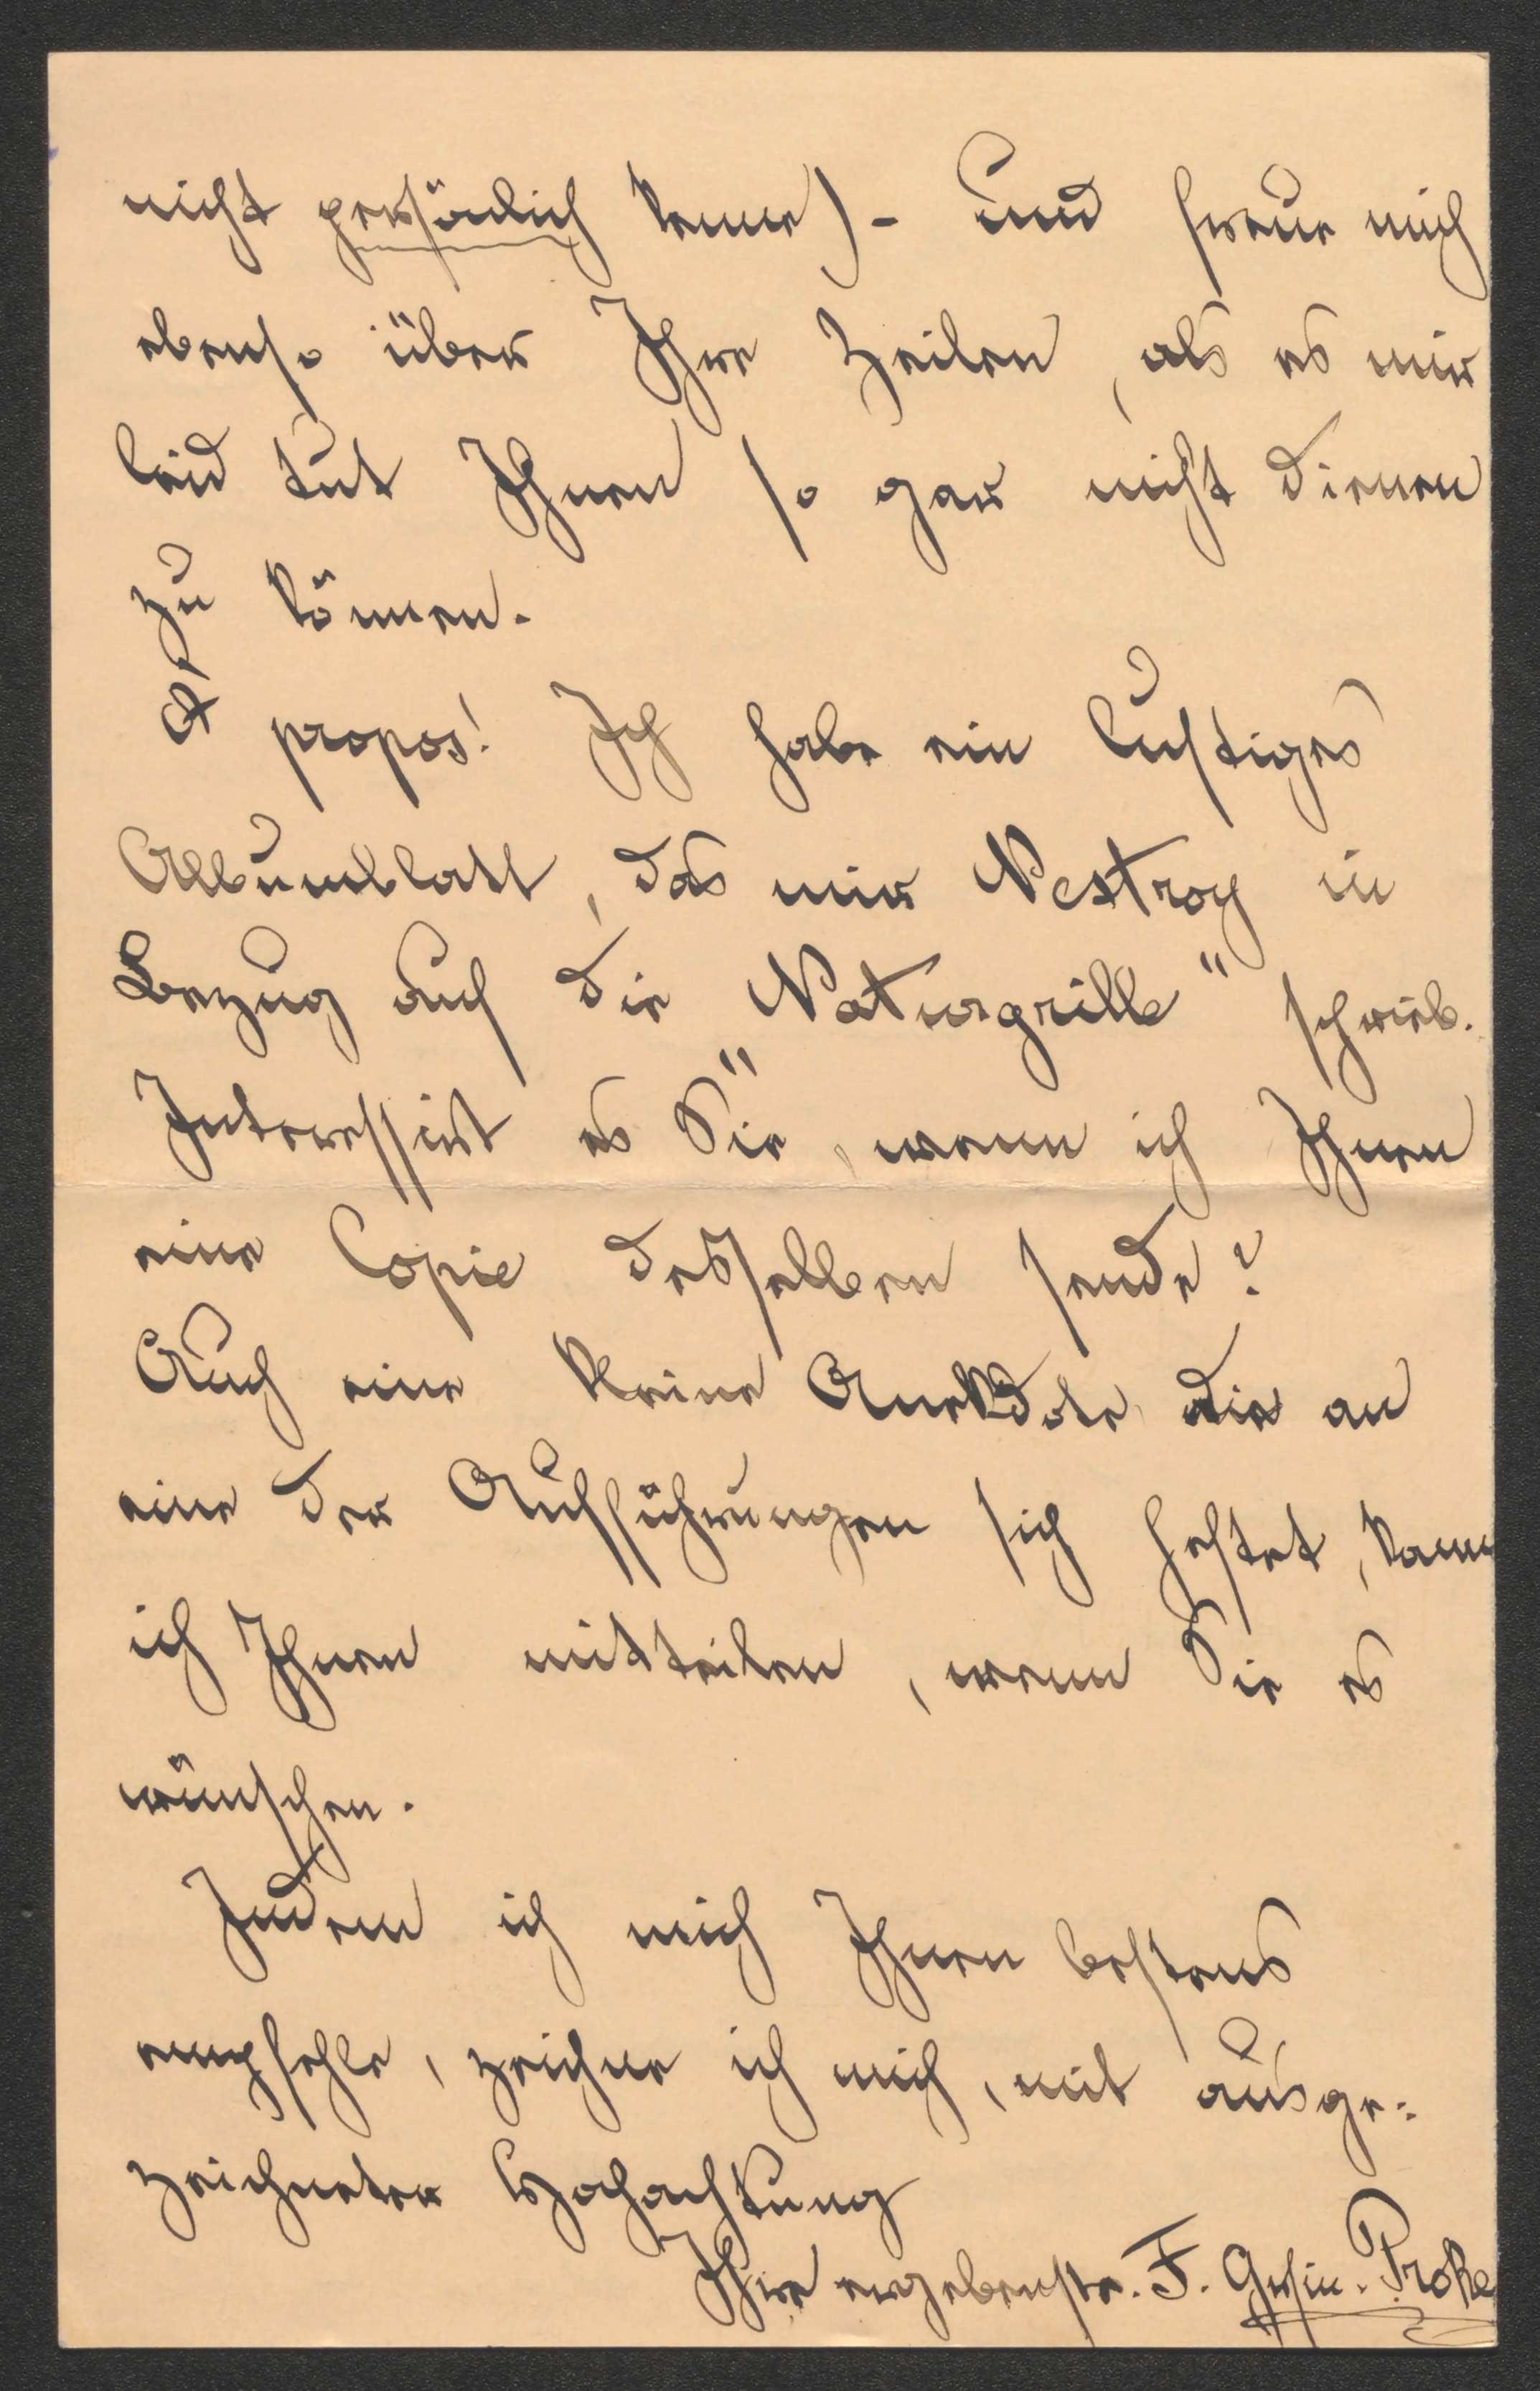 nicht persönlich kenne) - und freue mich
ebenso über Ihre Zeilen, als es mir
leid tut Ihnen so gar nicht dienen
zu können.
A propos! Ich habe ein lustiges
Albumblatt, das mir Nestroy in
Bezug auf die "Naturgrille" schrieb.
Interessirt es Sie, wenn ich Ihnen
eine Copie desselben sende?
Auch eine kleine Anekdote die an
eine der Aufführungen sich heftet, kann
ich Ihnen mitteilen, wenn Sie es
wünschen.
Indem ich mich Ihnen bestens
empfehle, zeichne ich mich, mit ausge-
zeichneter Hochachtung
Ihre ergebenste. F. Gfin. Proke